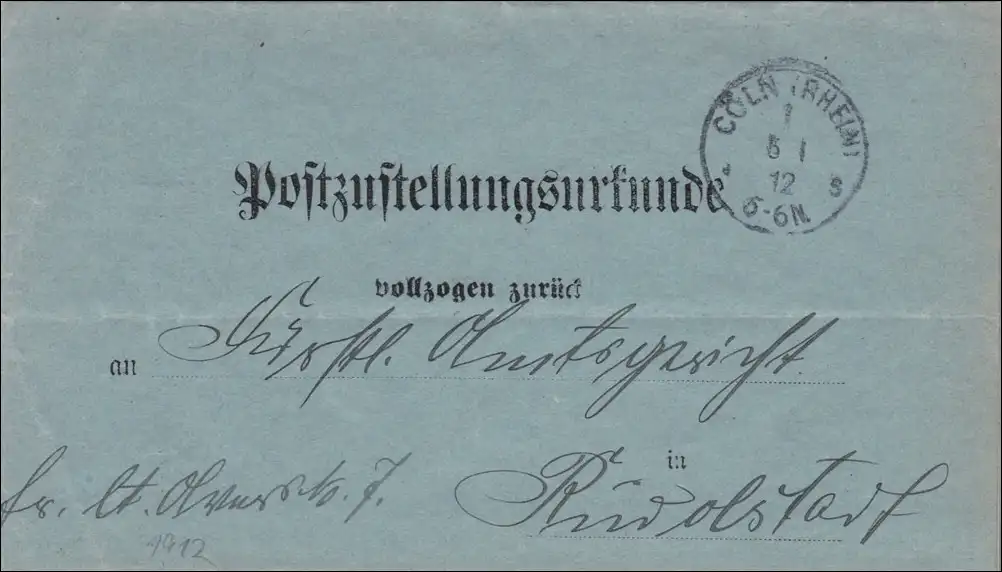 CÖLN (RHEIN)
1
5 1
12
5-6N.
* S
Postzustellungsurkunde
vollzogen zurück
an Fürstl. Amtsgericht
in
fr. lt. Avers No. 7.
Rudolstadt
1912